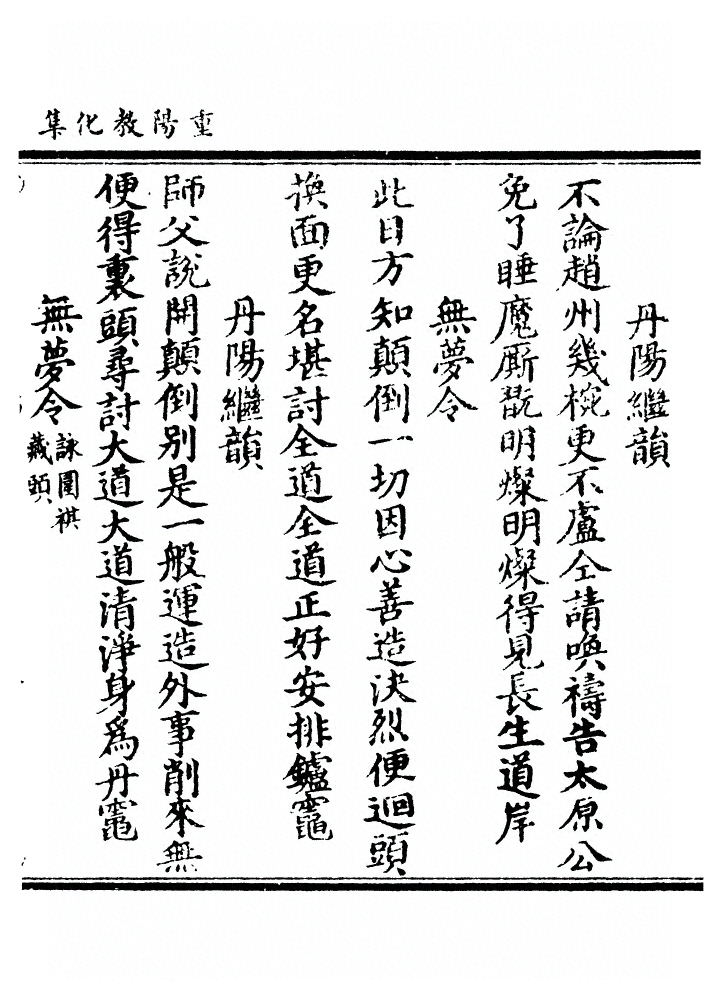 重陽教化集
丹陽繼韻
不論趙州幾椀更不盧仝請喚禱告太原公
免了睡魔厮翫明燦明燦得見長生道岸
無夢令
此日方知顛倒一切因心善造決烈便迴頭
換面更名堪討全道全道正好安排鑪竈
丹陽繼韻
師父說開顛倒別是一般運造外事削來無
便得裏頭尋討大道大道清淨身為丹竈
無夢令
詠圍棋
藏頭